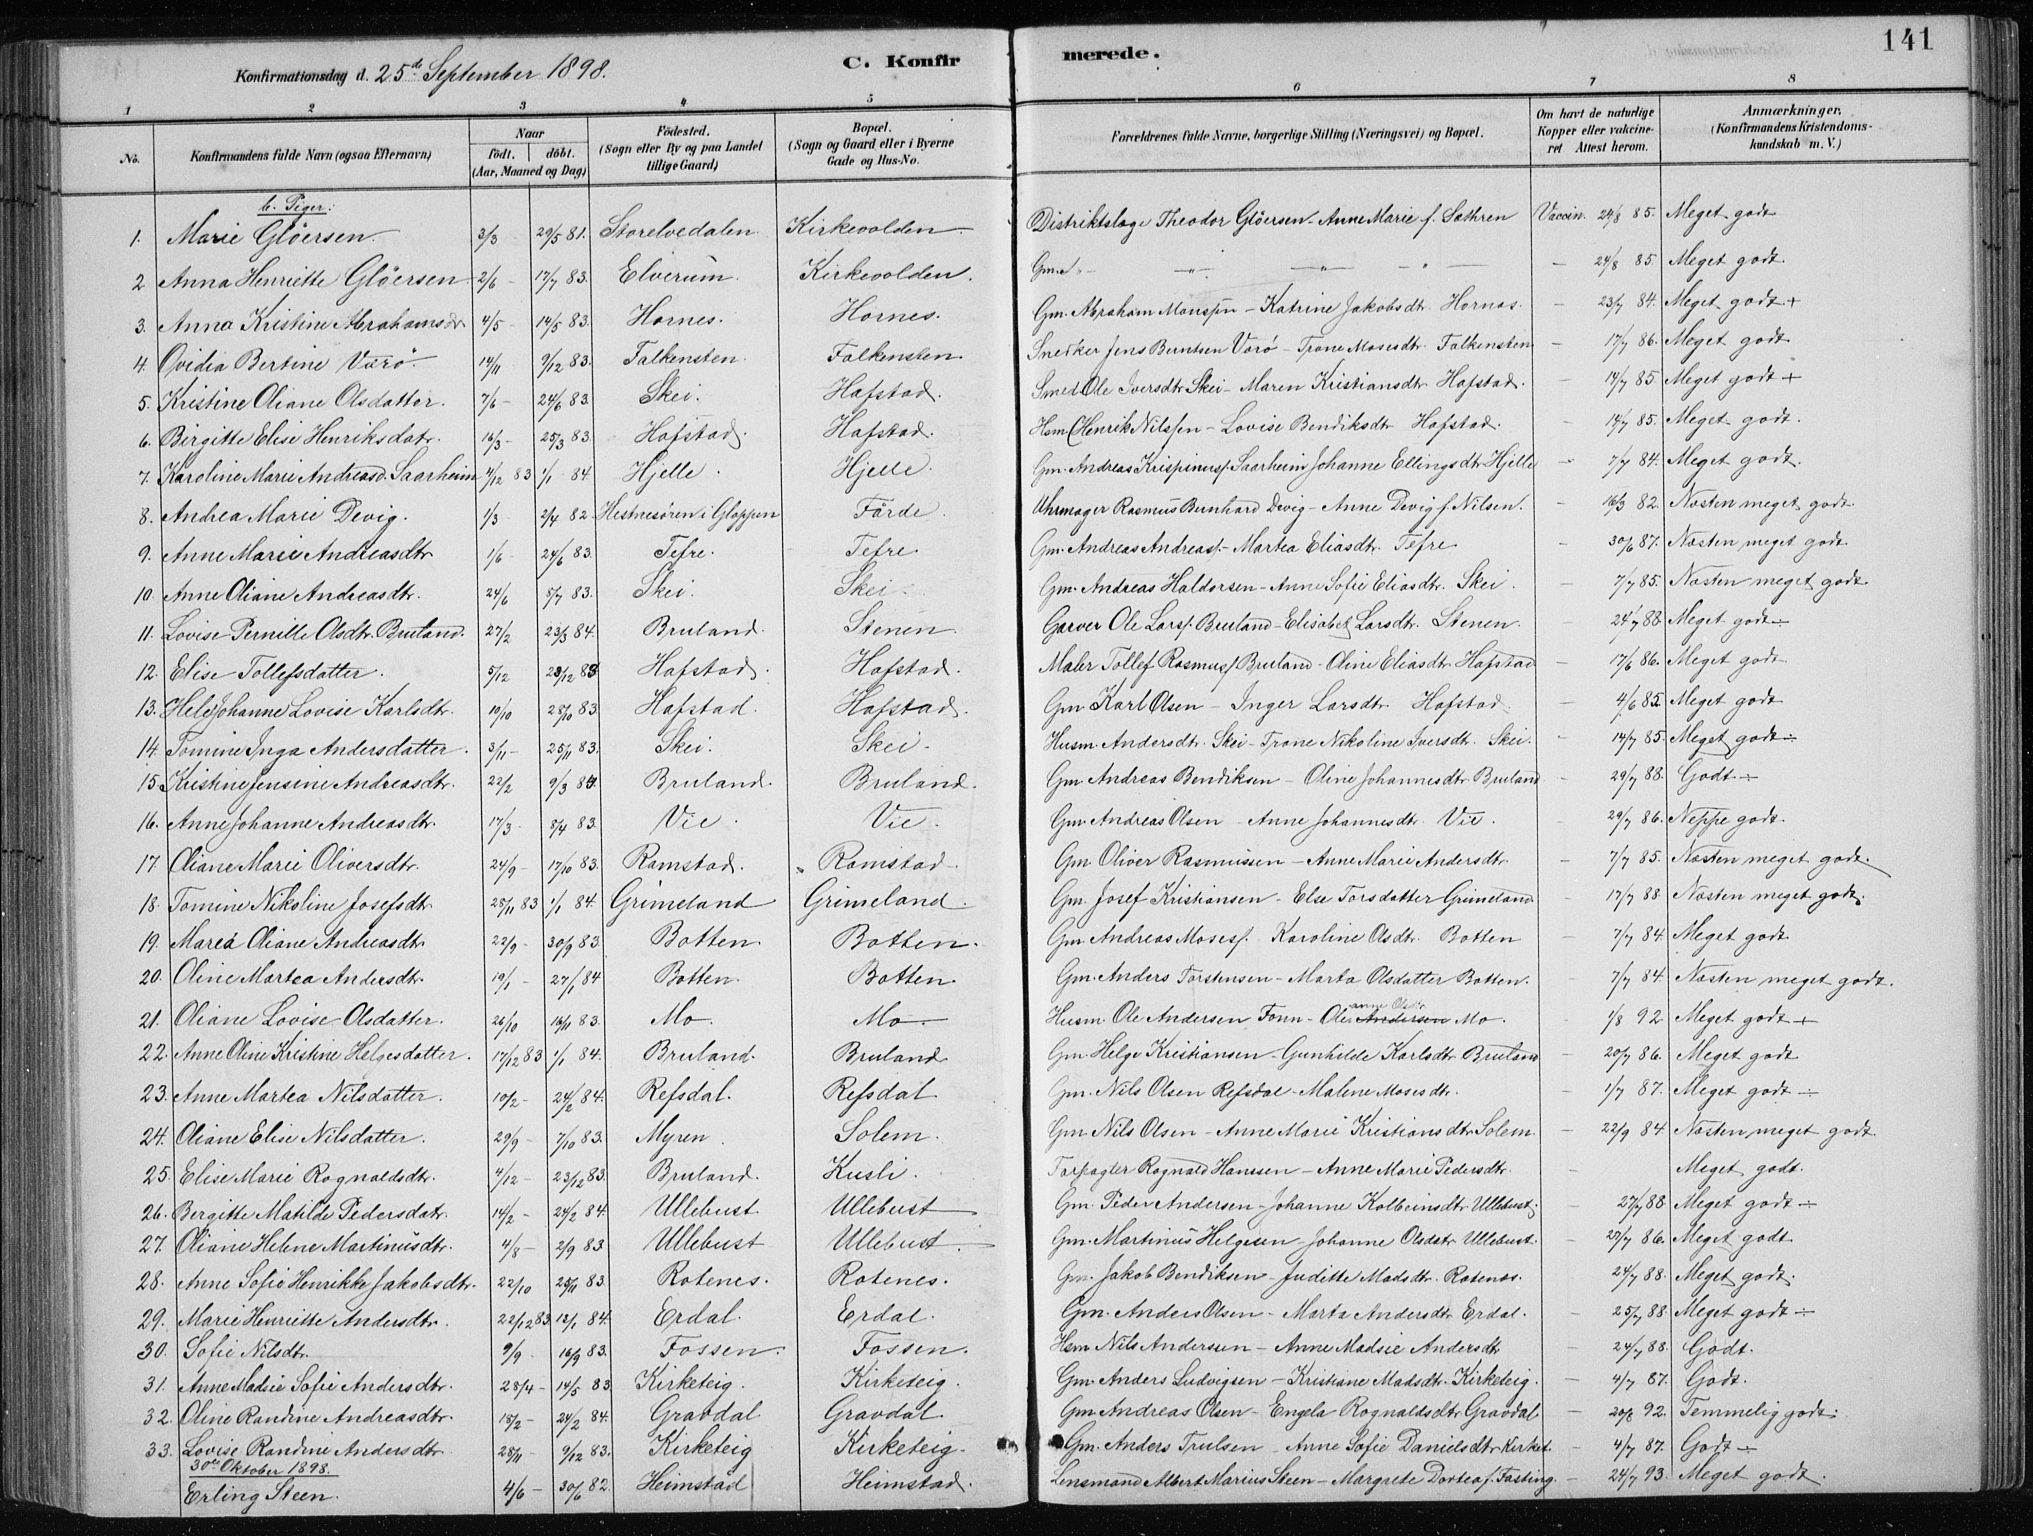 141
Konfirmationsdag d. 25de September 1898. C. Konfirmerede.
1 2 3 4 5 6 7 8
No. Konfirmandens fulde Navn (ogsaa Efternavn) Naar født. døbt. (Aar, Maaned og Dag) Fødested. (Sogn eller By og paa Landet tillige Gaard) Bopæl. (Sogn og Gaard eller i Byerne Gade og Hus-No. Forældrenes fulde Navne, borgerlige Stilling (Næringsvei) og Bopæl. Om havt de naturlige Kopper eller vakcineret. Attest herom. Anmærkninger, (Konfirmandens Kristendomskundskab m. V.)
b. Piger:
1. Marie Gløersen 3/3 29/5 81. Storelvedalen Kirkevolden Distriktslæge Theodor Gløersen - Anne Marie f. Sæthren Vaccin. 24/8 85. Meget godt
2 Anna Henriette Gløersen 2/6 - 17/7 83. Elverum. Kirkevolden. Gm. - 24/8 85. Meget godt.
3. Anna Kristine Abrahamsdr 4/5 - 14/5 83. Hornes. Hornes. Gm. Abraham Monssen - Katrine Jakobsdtr. Hornes. - 23/7 84. Meget godt +
4. Ovidia Bertine Varø 14/11 9/12 83. Falkensten. Falkensten Snedker Jens Berntsen Varø - Trone Mosesdtr. Falkensten - 17/7 86. Meget godt
5. Kristine Oliane Olsdatter. 7/6 - 24/6 83. Skei. Hafstad. Smed Ole Iversdtr Skei - Maren Kristiansdtr. Hafstad. - 14/7 85 Meget godt +
6. Birgitte Elise Henriksdatr. 16/3 - 25/3 83. Hafstad. Hafstad. Hsm Henrik Nilssen - Lovise Bendiksdtr Hafstad. - 14/7 85. Meget godt.
7. Karoline Marie Andreasd. Saarheim 4/12 83 1/1 84. Hjelle. Hjelle. Gm. Andreas Krispinuss. Saarheim Johanne Ellingsdtr Hjelle - 7/7 84. Meget godt.
8. Andrea Marie Devig. 1/3 2/4 82. Hestnesøren i Gloppen Førde. Uhrmager Rasmus Bernhard Devig - Anne Devig f. Nilsen. - 16/3 82. Næsten meget godt
9. Anne Marie Andreasdtr 1/6 - 24/6 83. Tefre. Tefre Gm. Andreas Andreass. - Martea Eliasdtr. Tefre - 30/6 87. Næsten meget godt
10. Anne Oliane Andreasdtr. 24/6 8/7 83. Skei. Skei. Gm. Andreas Haldorsen - Anne Sofie Eliasdtr. Skei. - 7/7 85. Næsten meget godt
11. Lovise Pernille Olsdtr. Bruland. 27/2 23/3 84. Bruland. Stenen. Garver Ole Larss. Bruland - Elisabet Larsdtr. Stenen. - 24/7 88. Meget godt ÷
12. Elise Tollefsdatter. 5/12 23/12 83. Hafstad. Hafstad. Maler Tollef Rasmuss Bruland - Oline Eliasdtr Hafstad - 17/6 86. Meget godt
13. Hele Johanne Lovise Karlsdtr. 10/10 28/10 83 Hafstad. Hafstad. Gm Karl Olsen - Inger Larsdtr Hafstad - 4/6 85. Meget godt
14. Tomine Inga Andersdatter. 3/11 - 25/11 83. Skei. Skei. Husm. Andersdtr. Skei - Trone Nikoline Iversdtr. Skei. - 14/7 85. Meget godt ÷
15. Kristine Jensine Andreasdtr. 22/2 9/3 84. Bruland. Bruland. Gm Andreas Bendiksen - Oline Johannesdtr Bruland - 29/7 88. Godt ÷
16. Anne Johanne Andreasdtr. 17/3 - 8/4 83. Vie. Vie. Gm. Andreas Olsen - Anne Johannesdtr Vie. - 29/7 86. Neppe godt.
17 Oliane Marie Oliversdtr. 24/9 - 17/10 83. Ramstad. Ramstad Gm Oliver Rasmussen - Anne Marie Andersdtr - 7/7 85. Næsten meget godt.
18. Tomine Nikoline Josefsdtr. 28/11 83 1/1 84. Grimeland Grimeland. Gm Josef Kristiansen - Else Torsdatter Grimeland - 17/7 88 Næsten meget godt
19. Marea Oliane Andreasdtr 22/9 - 30/9 83. Botten. Botten. Gm Andreas Mosess. Karoline Olsdtr. Botten - 7/7 84. Meget godt
20. Oline Martea Andersdtr. 19/1 - 27/1 84 Botten. Botten. Gm. Anders Torstensen - Marta Olsdatter Botten. - 7/7 84. Næsten meget godt.
21. Oliane Lovise Olsdatter. 26/10 16/11 83. Mo. Mo. Husm Ole Andersen Fonn - Oliane Olsdr Andersen Mo. - 1/8 92 Meget godt +
22. Anne Oline Kristine Helgesdatter. 17/12 83 1/1 84. Bruland. Bruland Gm. Helge Kristiansen - Gunhilde Karlsdtr Bruland - 20/7 86. Meget godt
23. Anne Martea Nilsdatter. 10/2 - 24/2 84. Refsdal. Refsdal. Gm. Nils Olsen Refsdal - Malene Mosesdtr. - 1/7 87. Meget godt ÷
24. Oliane Elise Nilsdatter. 29/9 - 7/10 83. Myren. Solem. Gm Nils Olsen - Anne Marie Kristiansdtr Solem. - 22/9 84. Næsten meget godt
25. Elise Marie Rognaldsdtr. 4/12 - 23/12 83. Bruland. Kusli. Forpagter Rognald Hanssen - Anne Marie Pedersdtr. - Meget godt.
26. Bergitte Matilde Pedersdatr. 14/2 - 24/2 84. Ullebust Ullebust Gm. Peder Andersen - Johanne Kolbeinsdtr Ullebust. 27/7 88 Meget godt ÷
27. Oliane Helene Martinusdtr. 4/8 - 2/9 83 Ullebust Ullebust. Gm. Martinus Helgesen Johanne Olsdatr Ullebust. - 27/7 86. Meget godt
28. Anne Sofie Henrikke Jakobsdtr. 22/10 25/11 83. Rotenes. Rotenes. Gm. Jakob Bendiksen - Juditte Madsdtr. Rotenes. - 24/7 88. Meget godt.
29. Marie Henriette Andersdtr. 22/12 83 12/1 84. Erdal. Erdal. Gm. Anders Olsen - Marta Andersdtr Erdal. - 25/7 88 Meget godt ÷
30. Sofie Nilsdtr. 9/9 - 16/9 83. Fossen. Fossen. Hsm Nils Andersen - Anne Madsie Andersdtr - 24/7 88. Godt.
31. Anne Madsie Sofie Andersdtr. 28/4 - 14/5 83. Kirketeig. Kirketeig. Gm. Anders Ludvigsen - Kristiane Madsdtr. Kirketeig. - 4/7 87. Godt.
32. Oline Randine Andreasdtr. 18/2 - 24/2 84. Gravdal Gravdal. Gm Andreas Olsen - Engela Rognaldsdtr Gravdal - 20/8 92. Temmelig godt.
33. Lovise Randine Andersdtr 28/11 - 9/12 83. Kirketeig Kirketeig. Gm. Anders Trulsen - Anne Sofie Danielsdtr Kirket. - 4/7 87. Godt ÷
30te Oktober 1898.
Erling Steen. 4/6 - 30/6 82. Heimstad Heimstad. Lensmand Albert Marius Steen - Margrete Dortea f. Fasting. - 24/7 93. Meget godt.